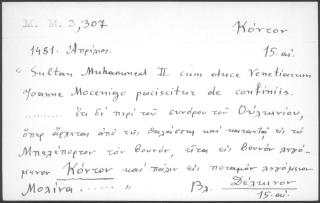 M. M. 3,307
Κόντον
1481. Ἀπρίλιος.
15. αἰ.
"Sultan Muhammed II. cum duce Venetiarum
Joanne Mocenigo paciscitur de confiniis.
......... ἔτι δὲ περὶ τοῦ συνόρου τοῦ Οὐλκινίου,
ὅπερ ἄρχεται ἀπὸ τῆς θαλάσσης καὶ καταντᾷ εἰς τὸ
Μπελέπορτον τὸν βουνόν, εἶτα εἰς βουνὸν λεγό-
μενον Κόντον καὶ πάλιν εἰς ποταμὸν λεγόμενον
Μολίνα ...... "
Βλ. Δέλκινον
15. αἰ.